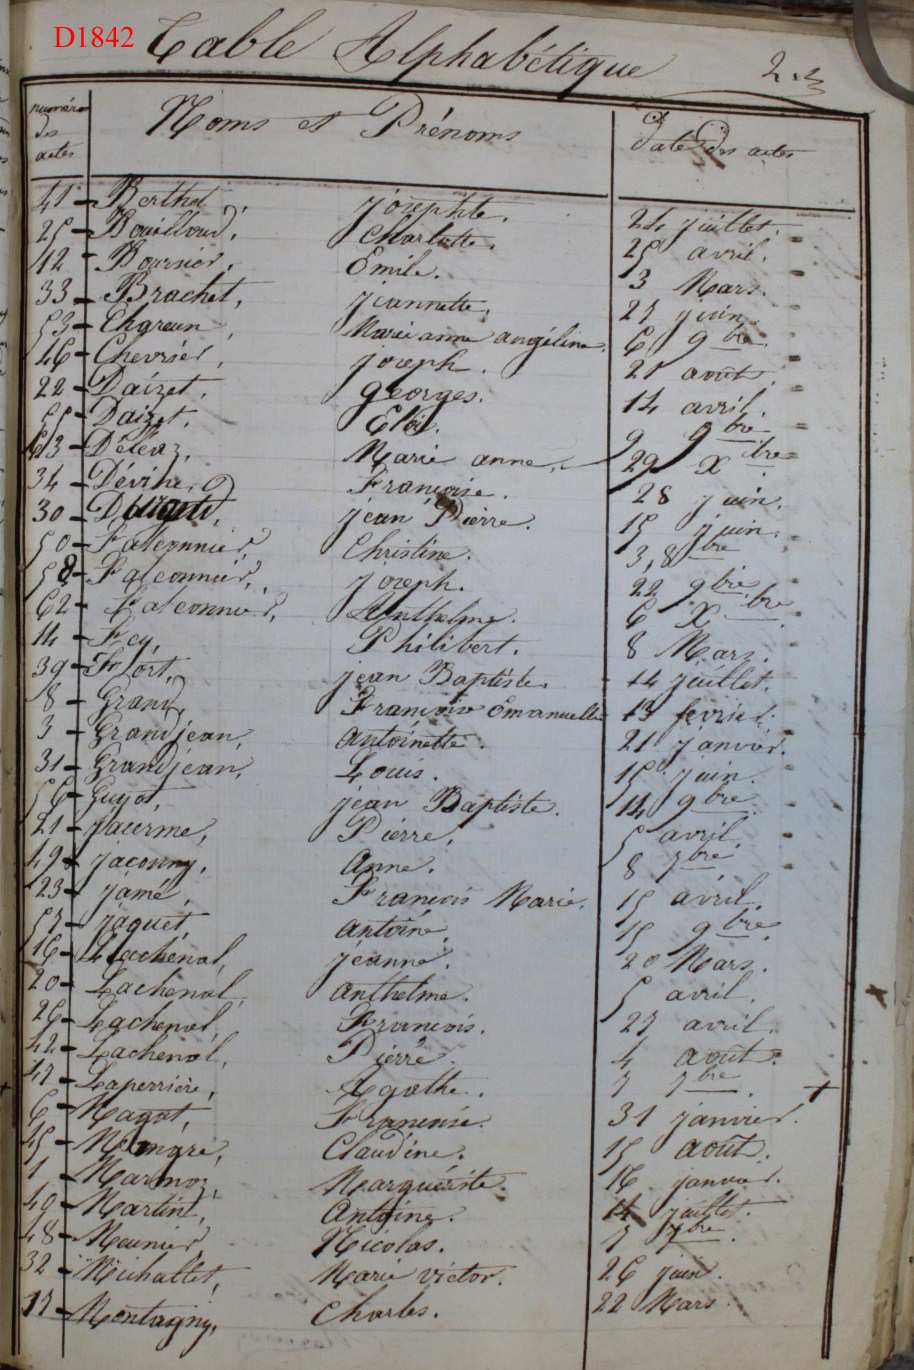 D1842
Table Alphabétique
numéro des actes Noms et Prénoms Date des actes
41 - Berthet, josephte. 24 juillet.
25 - Bouilloud, Charlotte. 25 avril.
12 - Boursier, Emile. 3 Mars.
33 - Brachet, jeannette. 27 juin.
53 - marie anne angéline. 6 9bre.
46 - Chevrier, joseph. 21 août.
22 - Daizet, georges. 14 avril.
55 - Daizet, Eloi. 9 9bre
63 - Marie anne. 29 Xbre
34 - Françoise. 28 juin.
30 - jean Pierre. 15 juin.
50 - Falconnier, Christine. 3, 8bre
58 - Falconnier, joseph. 22 9bre
62 - Falconnier, Anthelme. 6 Xbre.
14 - Fey, Philibert. 8 Mars.
39 - Fort, jean Baptiste. 14 juillet.
8 - Grand, Emanuelle 13 fevrier.
3 - Grandjean, antoinette. 21 janvier.
31 - Grandjean, Louis. 15 juin.
56 - Guyot, jean Baptiste. 14 9bre.
21 - Pierre. 5 avril.
49 - Anne. 8 7bre.
23 - jamé, François Marie. 15 avril.
57 - jaquet, antoine. 15 9bre.
16 - Lachenal, jeanne. 20 Mars.
20 - Lachenal, anthelme. 5 avril.
26 - Lachenal, François. 27 avril.
42 - Lachenal, Pierre. 4 août.
47 - Laperrière, Agathe. 7 7bre.
6 - Magat, Françoise. 31 janvier.
45 - Claudine. 15 août.
1 - Marmoz, Marguérite. 16 janvier.
40 - Martint, Antoine. 14 juillet.
48 - Meunier, Nicolas. 7 7bre.
32 - Michallet, Marie victor. 26 juin.
17 - Montagny, Charles. 22 Mars.